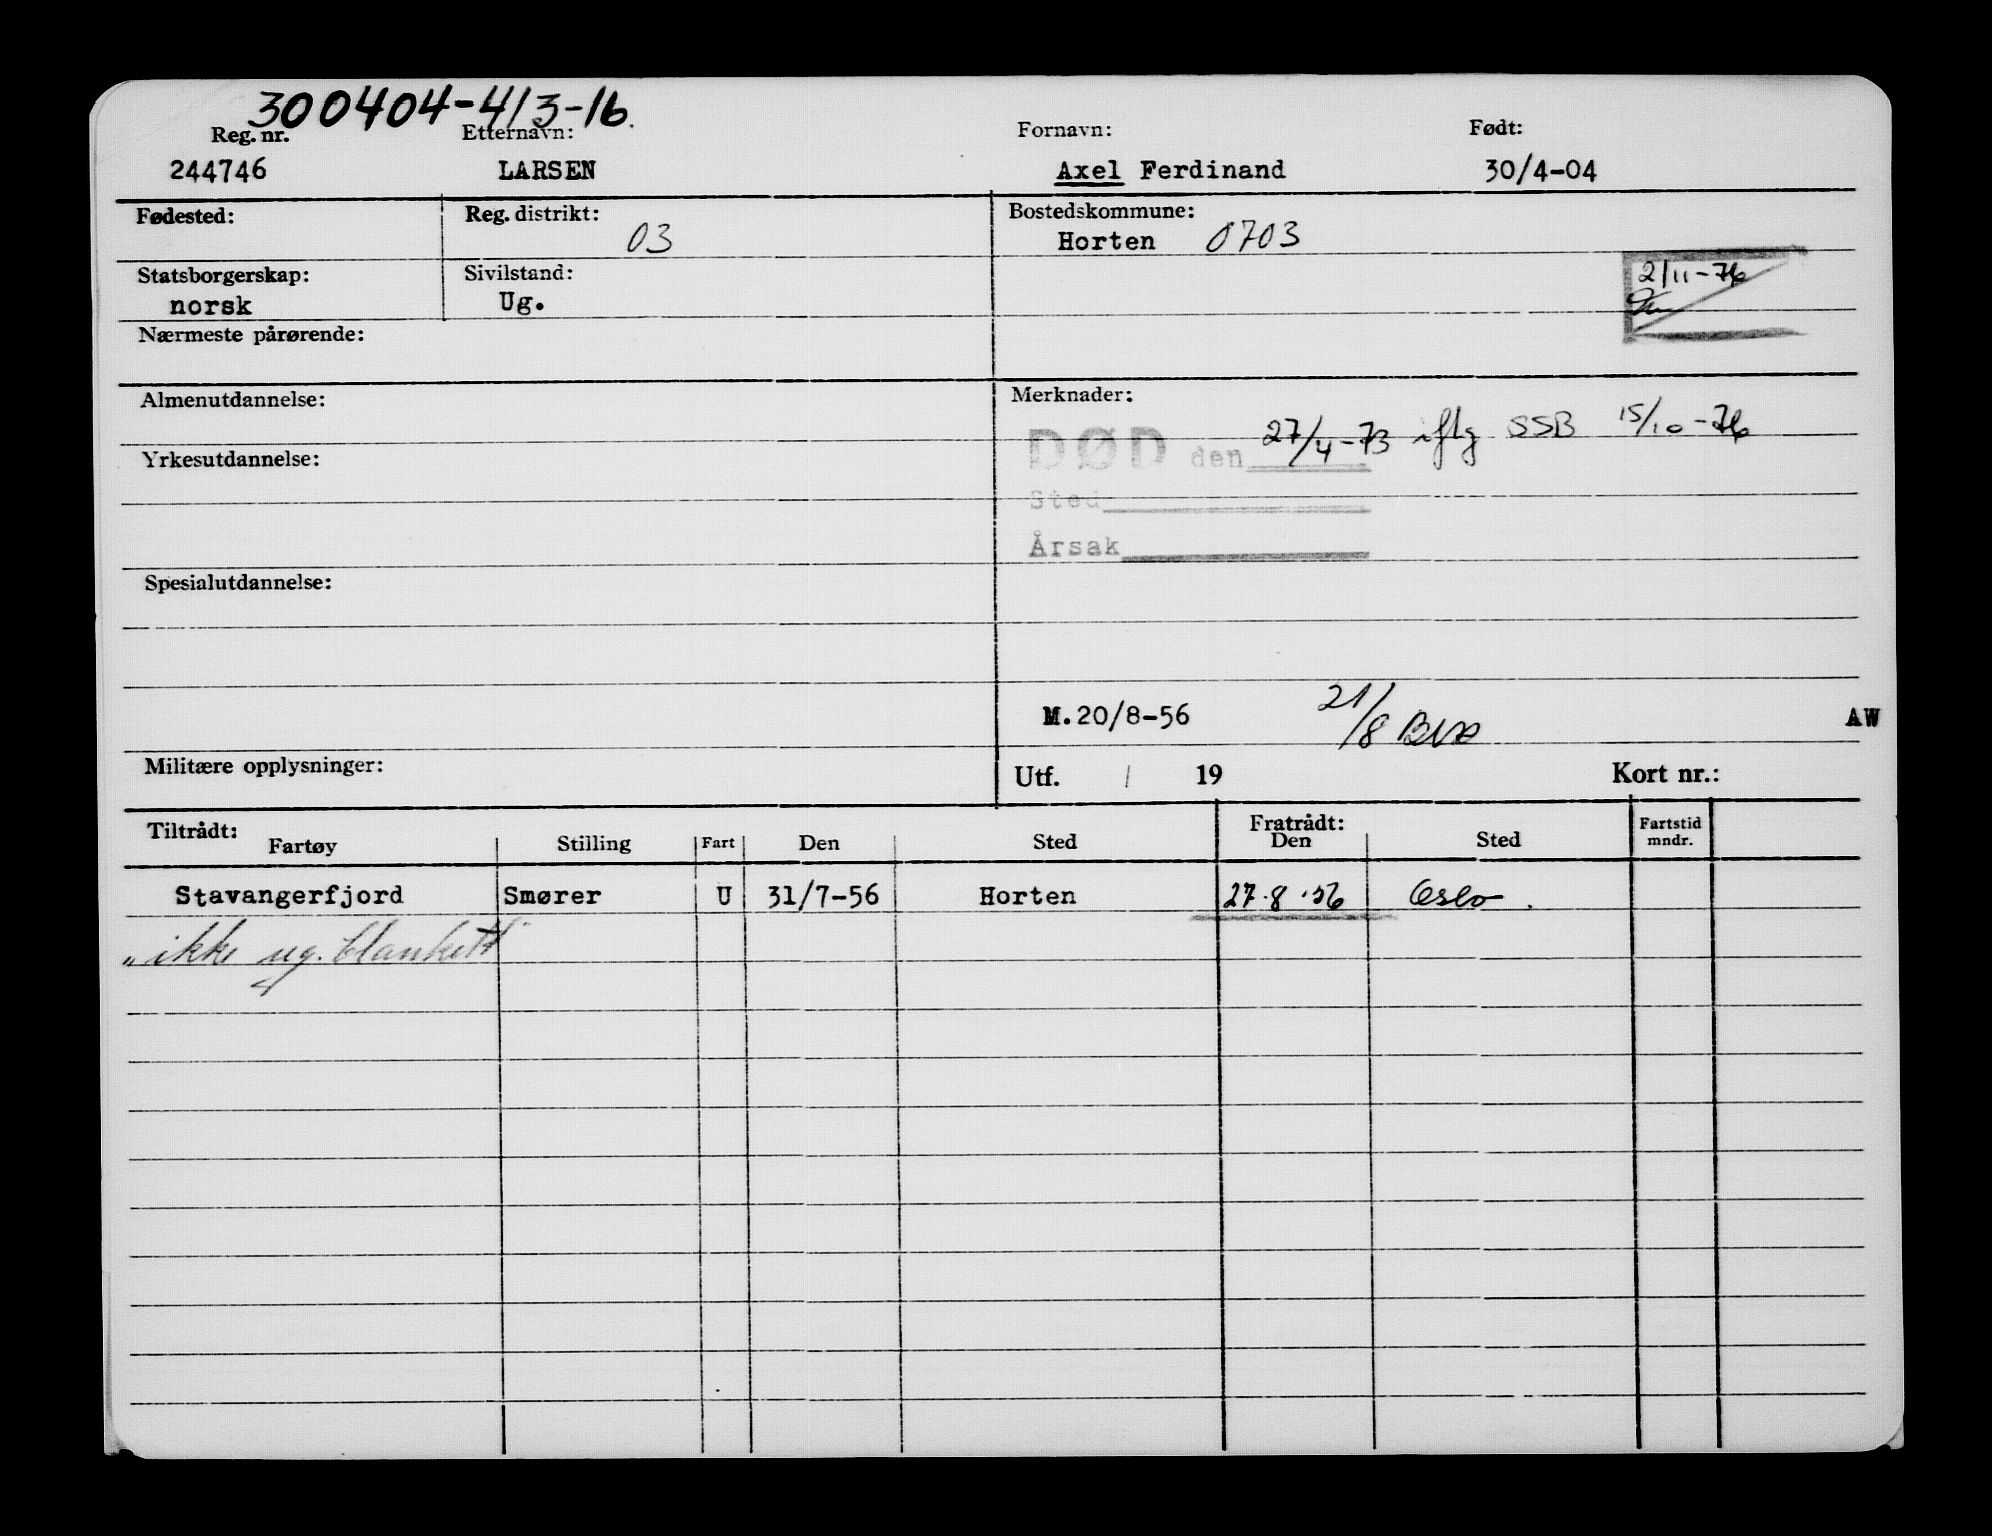 300404-413-16.
Reg. nr. Etternavn: Fornavn: Født:
244746 LARSEN Axel Ferdinand 30/4-04
Fødested: Reg. distrikt: 03 Bostedskommune: Horten 0703
Statsborgerskap: norsk Sivilstand: Ug. 2/11-76
Nærmeste pårørende:
Almenutdannelse: Merknader:
DØD den 27/4-73 iflg SSB 15/10-76
Yrkesutdannelse:
Sted
Årsak
Spesialutdannelse:
M.20/8-56 21/8 AW
Militære opplysninger: Utf. / 19 Kort nr.:
Tiltrådt: Fratrådt: Fartstid
Fartøy Stilling Fart Den Sted Den Sted mndr.
Stavangerfjord Smører U 31/7-56 Horten 27.8.56 Oslo.
"ikke ug. blankett"